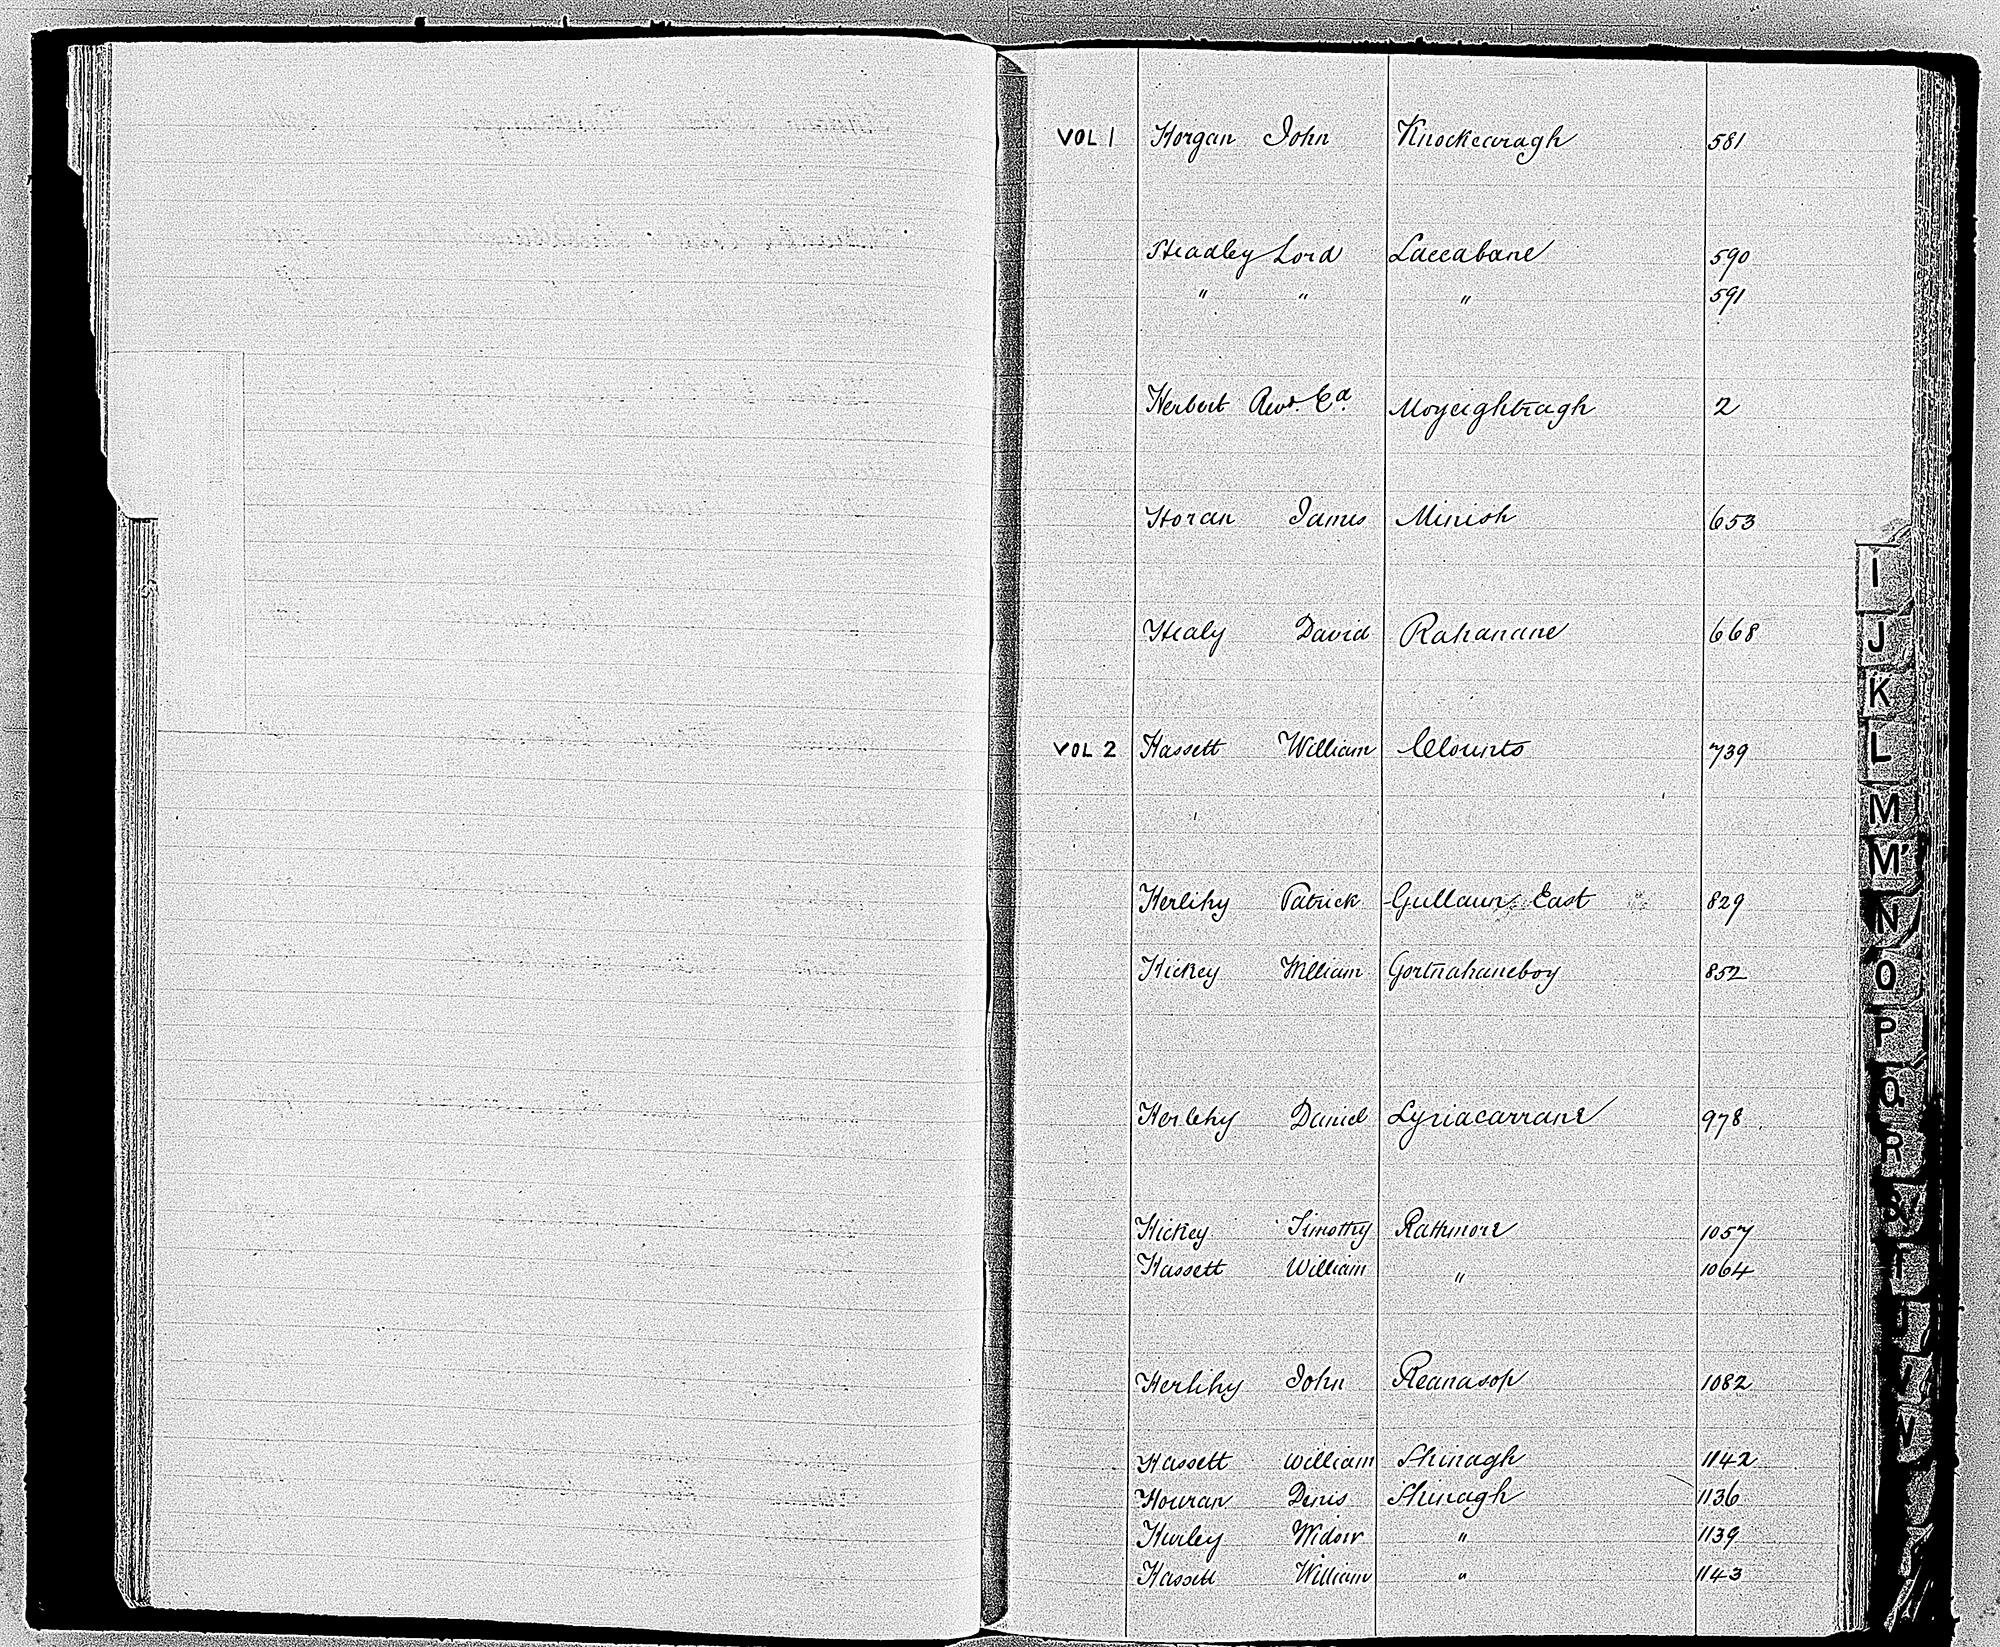 VOL 1 Horgan John Knockearagh 581
Headley Lord Laccabane 590
" " " 591
Herbert Revd. Ed. Moyeightragh 2
Horan James Minish 653
Healy David Rahanane 668
VOL 2 Hassett William Clounts 739
Herlihy Patrick Gullaun East 829
Hickey William Gortnahaneboy 852
Herlihy Daniel Lyriacarrane 978
Hickey Timothy Rathmore 1057
Hassett William " 1064
Herlihy John Reanasop 1082
Hassett William Shinagh 1142
Houran Denis Shinagh 1136
Hurley Widow " 1139
Hassett William " 1143
I
J
K
L
M
M'
N
O
P
Q
R
&
T
U
V
W